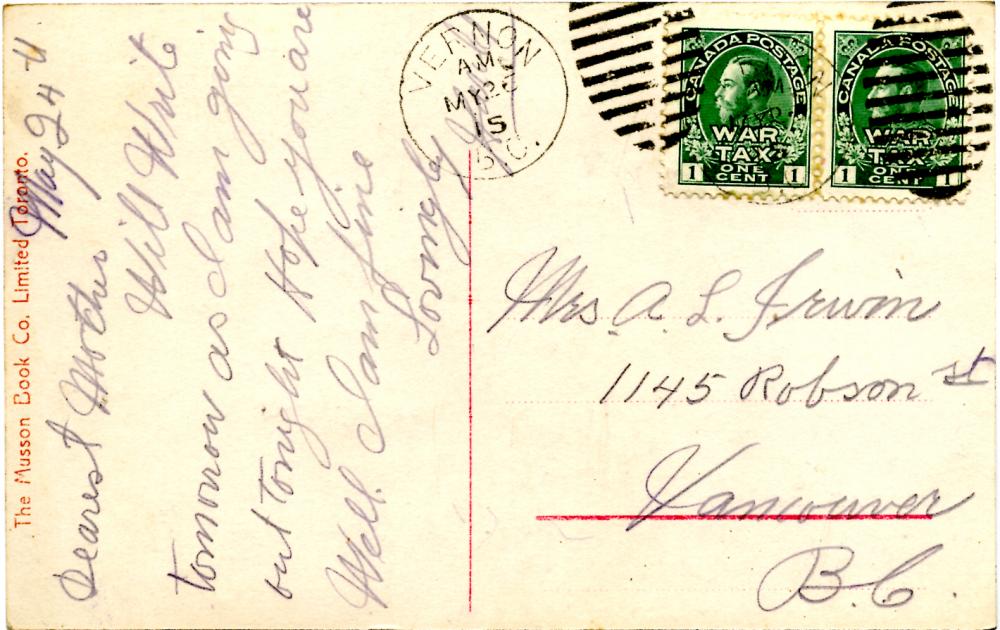 The Musson Book Co. Limited Toronto.
May 24th
Dearest Mother
Will Write
tomorrow as I am going
out tonight Hope you are
Well. I am fine
Lovingly
VERNON
AM
MY 26
15
B.C.
CANADA POSTAGE
WAR
TAX
ONE
CENT
1 1
CANADA POSTAGE
WAR
TAX
ONE
CENT
1 1
Mrs. A. L. Irwin
1145 Robson st
Vancouver
B.C.